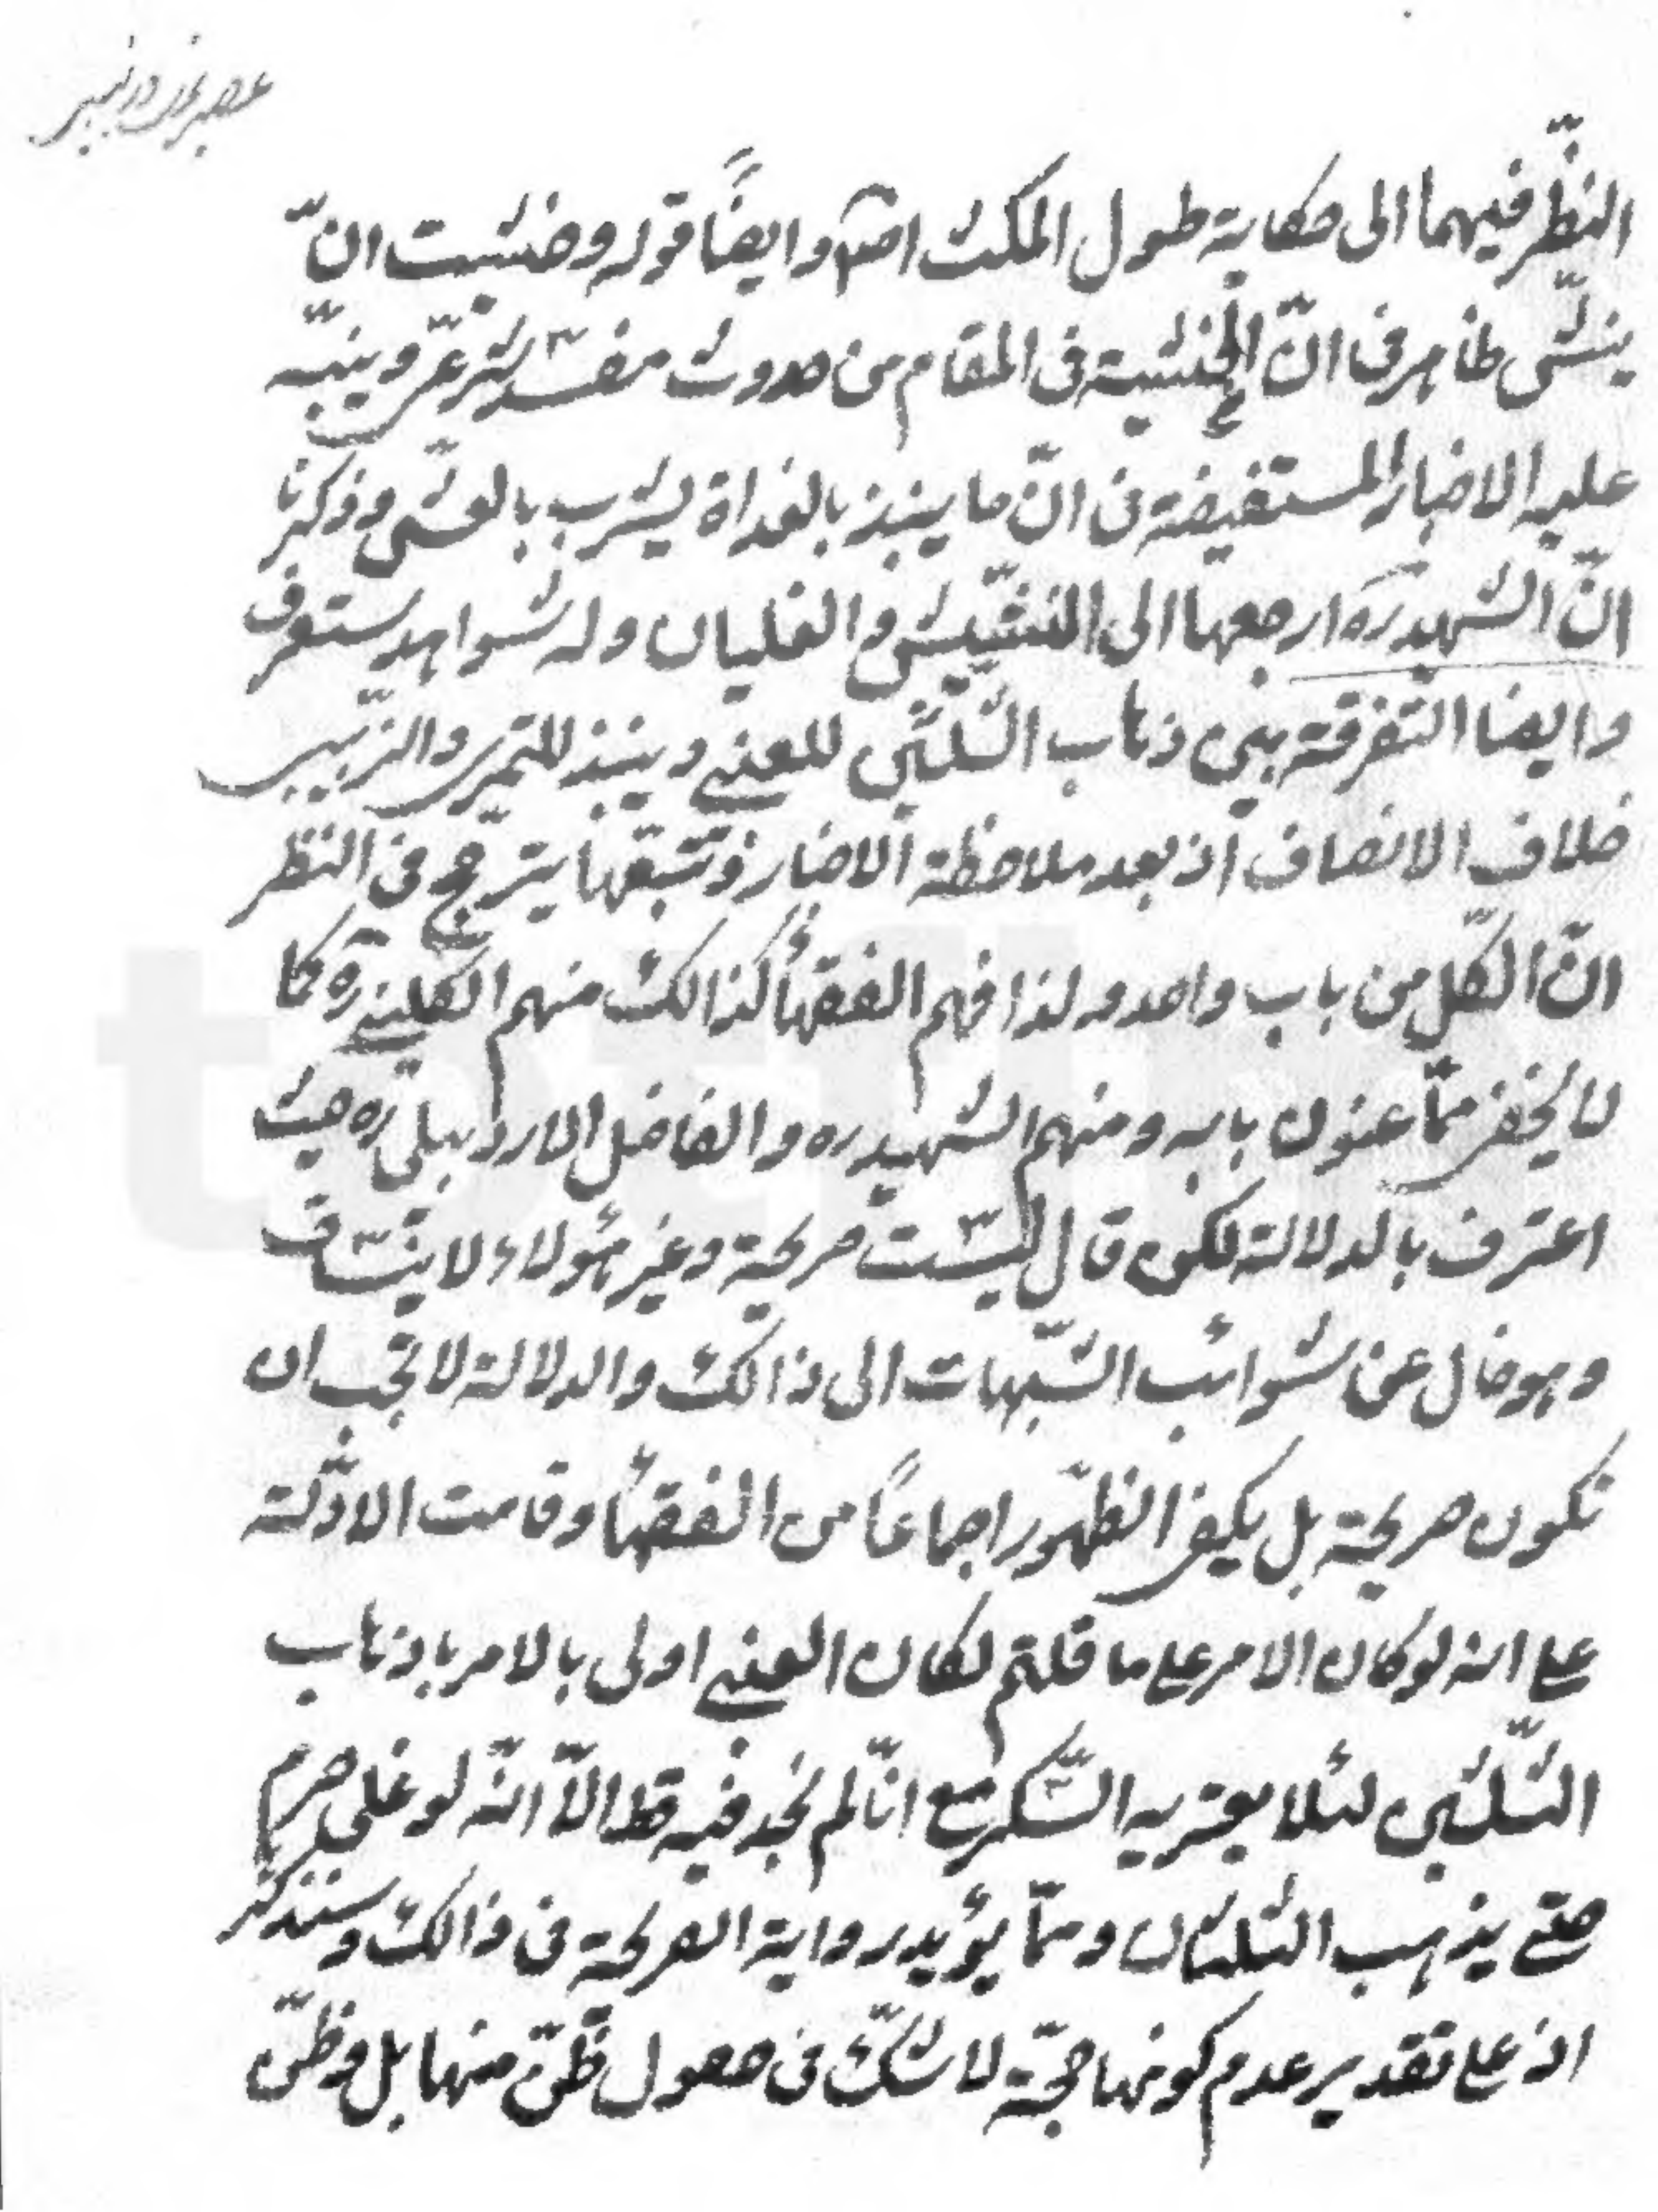 النّظر فيهما الى حكاية طول المكث اصلا وايضاً قوله وخشيت انّ
ينشّ ظاهر فى انّ الخشية فى المقام من حدوث مفسد شرعىّ وينبّه
عليه الاخبار المستفيضة فى انّ ما ينبذ بالغداة يشرب بالعشى وذكرنا
انّ الشّهيد ره ارجعها الى النّشيش والغليان وله شواهد ستعرف
وايضا التّفرقة بين ذهاب الثّلثين للعنبى وينبذ للتمرى والزّبيبى
خلاف الانصاف اذ بعد ملاحظة الاخبار وتتبّعها يترجّح فى النّظر
انّ الكلّ من باب واحد ولذا فهم الفقهاء كذالك منهم الكلينى ره كما
لا يخفى ممّا عنون بابه ومنهم الشّهيد ره والفاضل الاردبيلى ره حيث
اعترف بالدلالة لكن قال ليست صريحة وغير هؤلاء لا ينساق
وهو خال عن شوائب الشّبهات الى ذالك والدلالة لا تجب ان
تكون صريحة بل يكفى الظّهور اجماعاً من الفقهاء وقامت الادلّة
على انه لو كان الامر على ما قلتم لكان العنبى اولى بالامر باذهاب
الثّلثين لئلا يعتريه السّكر مع انّا لم نجد فيه قط الّا انّه لو غلى حرم
حتى يذهب الثلثان وممّا يؤيد رواية الصريحة فى ذالك وسنذكر
اذ على تقدير عدم كونها حجّة لا شكّ فى حصول ظنّ منها بل وظنّ